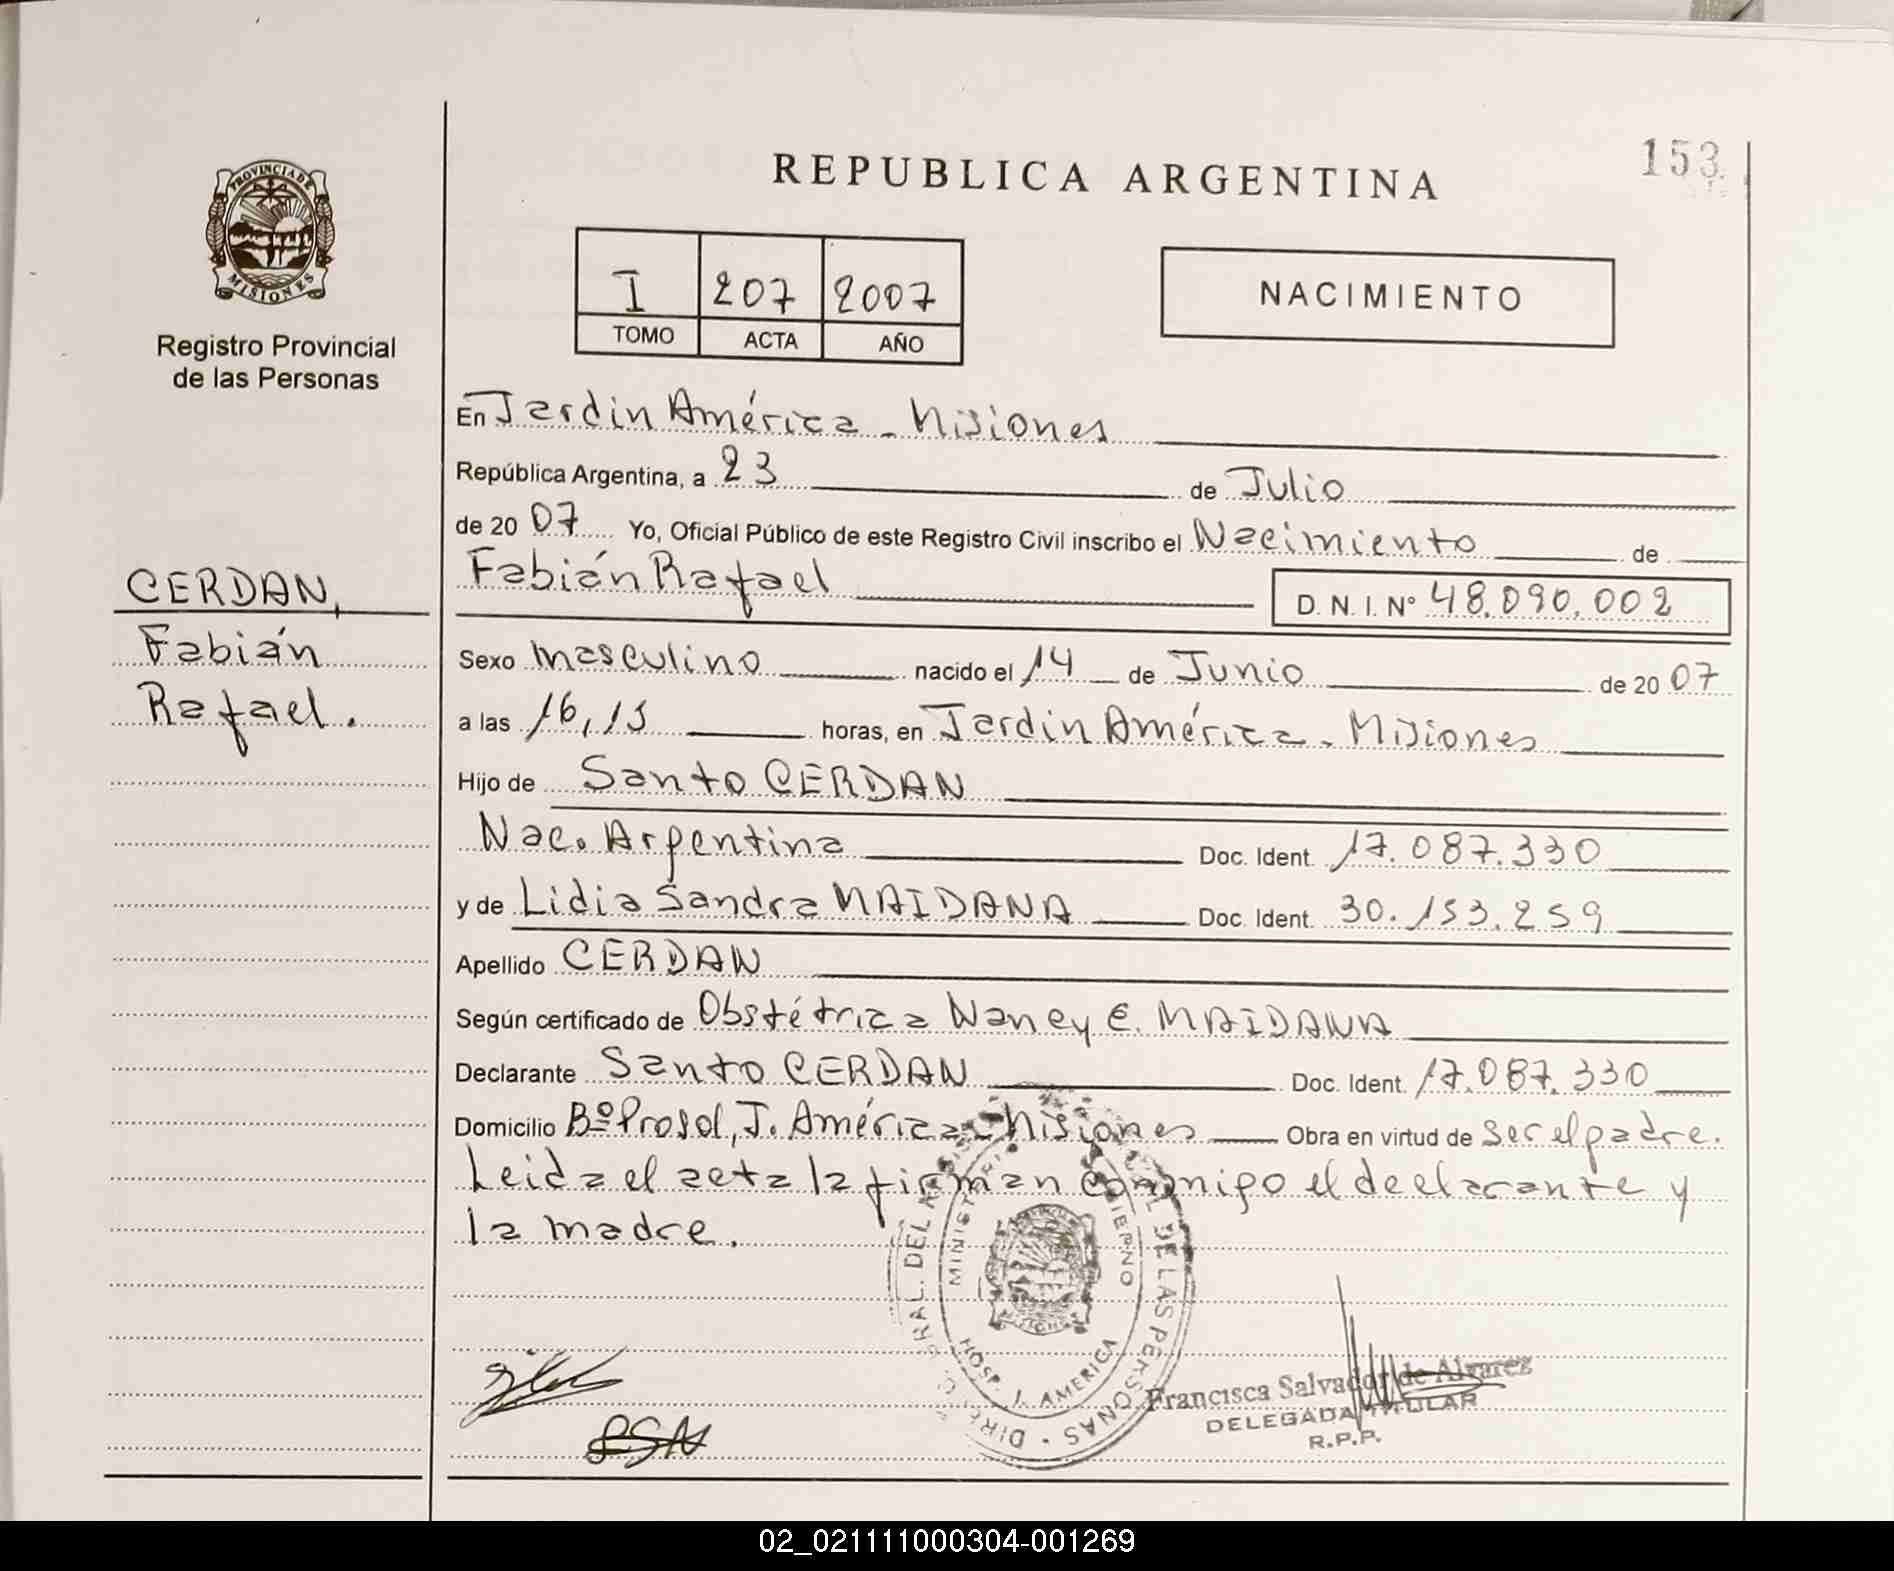 PROVINCIA DE
MISIONES
Registro Provincial
de las Personas
CERDAN,
Fabián
Rafael.
153
REPUBLICA ARGENTINA
I 207 2007
TOMO ACTA AÑO
NACIMIENTO
En Jardin América - Misiones
República Argentina, a 23 de Julio
de 20 07 Yo, Oficial Público de este Registro Civil inscribo el Nacimiento de
Fabián Rafael D. N. I. Nº 48.090.002
Sexo masculino nacido el 14 de Junio de 20 07
a las 16,15 horas, en Jardin América - Misiones
Hijo de Santo CERDAN
Nac. Argentina Doc. Ident. 17.087.330
y de Lidia Sandra MAIDANA Doc. Ident. 30.153.259
Apellido CERDAN
Según certificado de Obstétrica Nancy E. MAIDANA
Declarante Santo CERDAN Doc. Ident. 17.087.330
Domicilio Bº Prosol, J. América - Misiones Obra en virtud de ser el padre.
Leida el acta la firman conmigo el declarante y
la madre.
HOSP. J. AMERICA
DE LAS PERSONAS
Francisca Salvador de Alvarez
DELEGADA TITULAR
R.P.P.
02_021111000304-001269